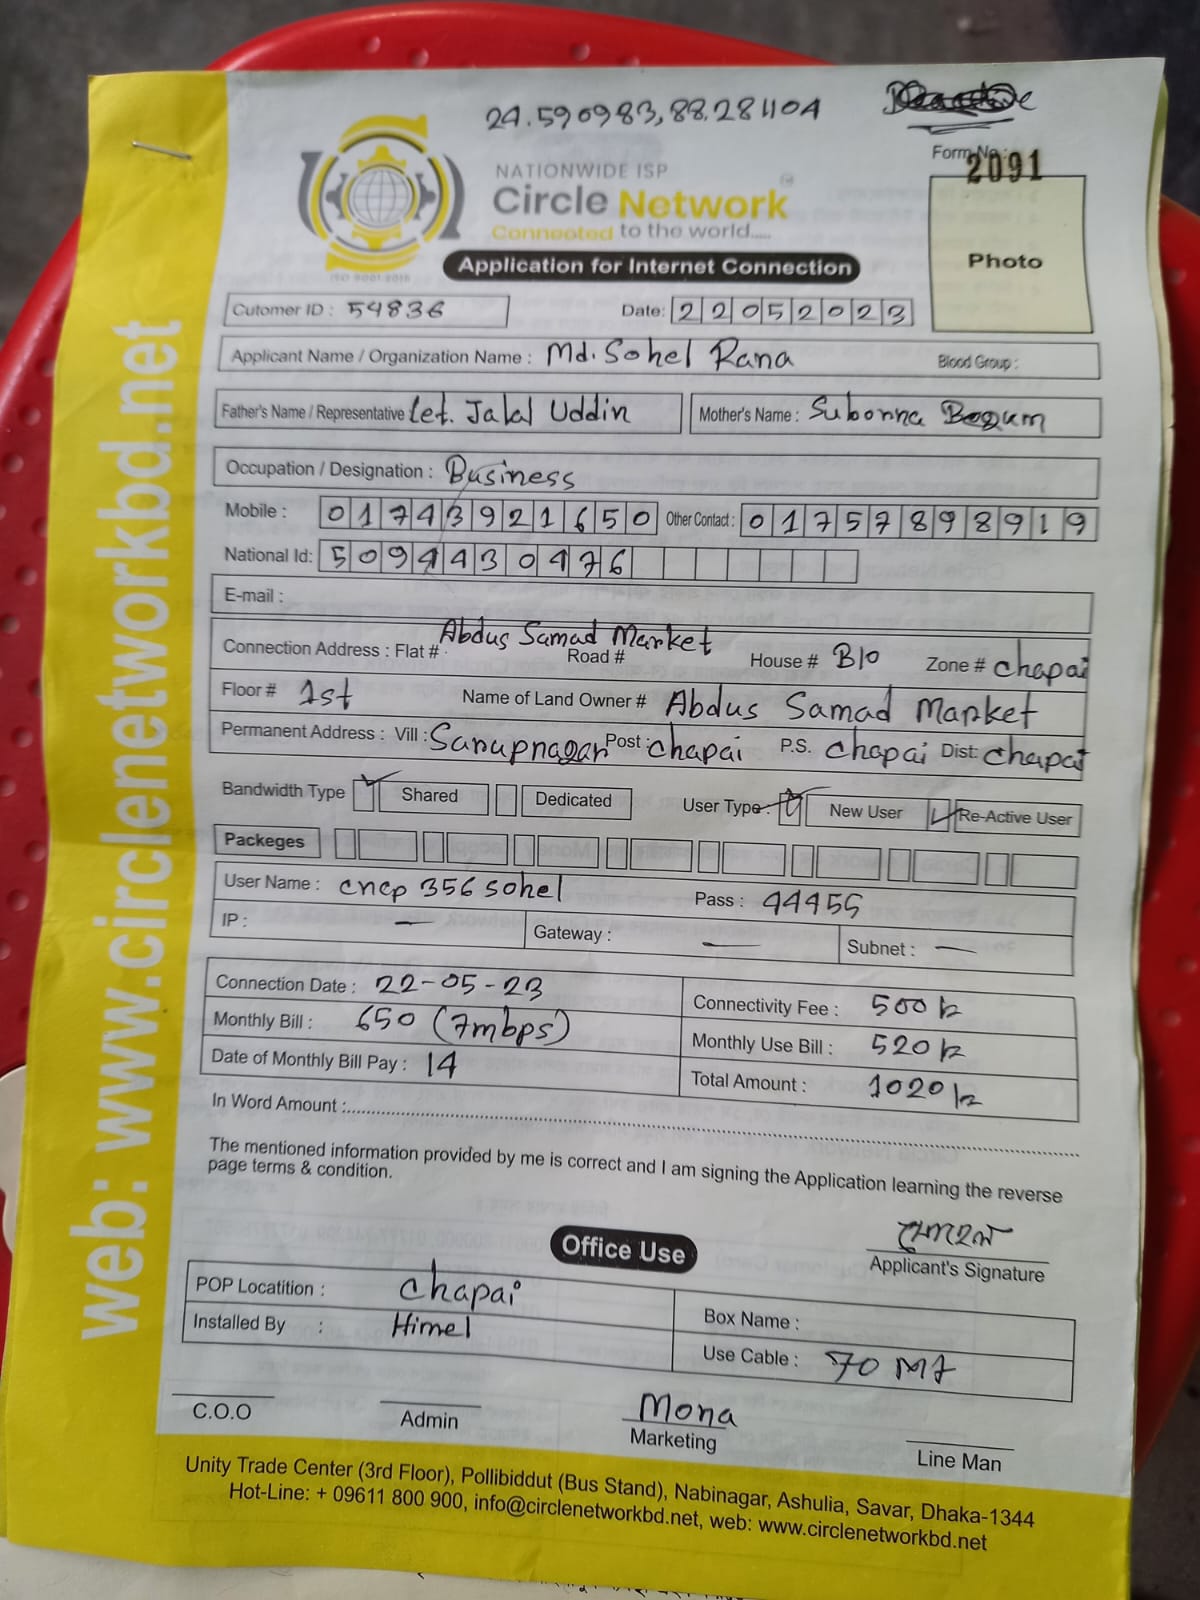 24.590983,88.281104
Form No :
2091
NATIONWIDE ISP
Circle Network
Connected to the world.....
ISO 9001:2015
Application for Internet Connection
Photo
Cutomer ID : 54836
Date: 22052023
Applicant Name / Organization Name : Md. Sohel Rana Blood Group :
Father's Name / Representative Let. Jalal Uddin Mother's Name : Subonna Begum
Occupation / Designation : Business
Mobile : 01743921650 Other Contact : 01757898919
National Id: 5094430476
E-mail :
Abdus Samad Market
Connection Address : Flat # Road # House # B10 Zone # chapai
Floor # 1st Name of Land Owner # Abdus Samad Market
Permanent Address : Vill : Sarupnagar Post : chapai P.S. chapai Dist: chapai
Bandwidth Type Shared Dedicated User Type : New User Re-Active User
Packeges
User Name : cncp356sohel Pass : 44455
IP : — Gateway : — Subnet : —
Connection Date : 22-05-23 Connectivity Fee : 500/=
Monthly Bill : 650 (7mbps) Monthly Use Bill : 520/=
Date of Monthly Bill Pay : 14 Total Amount : 1020/=
In Word Amount :
The mentioned information provided by me is correct and I am signing the Application learning the reverse
page terms & condition.
Applicant's Signature
Office Use
POP Locatition : chapai Box Name :
Installed By : Himel Use Cable : 70 MT
Mona
C.O.O Admin Marketing Line Man
Unity Trade Center (3rd Floor), Pollibiddut (Bus Stand), Nabinagar, Ashulia, Savar, Dhaka-1344
Hot-Line: + 09611 800 900, info@circlenetworkbd.net, web: www.circlenetworkbd.net
web: www.circlenetworkbd.net